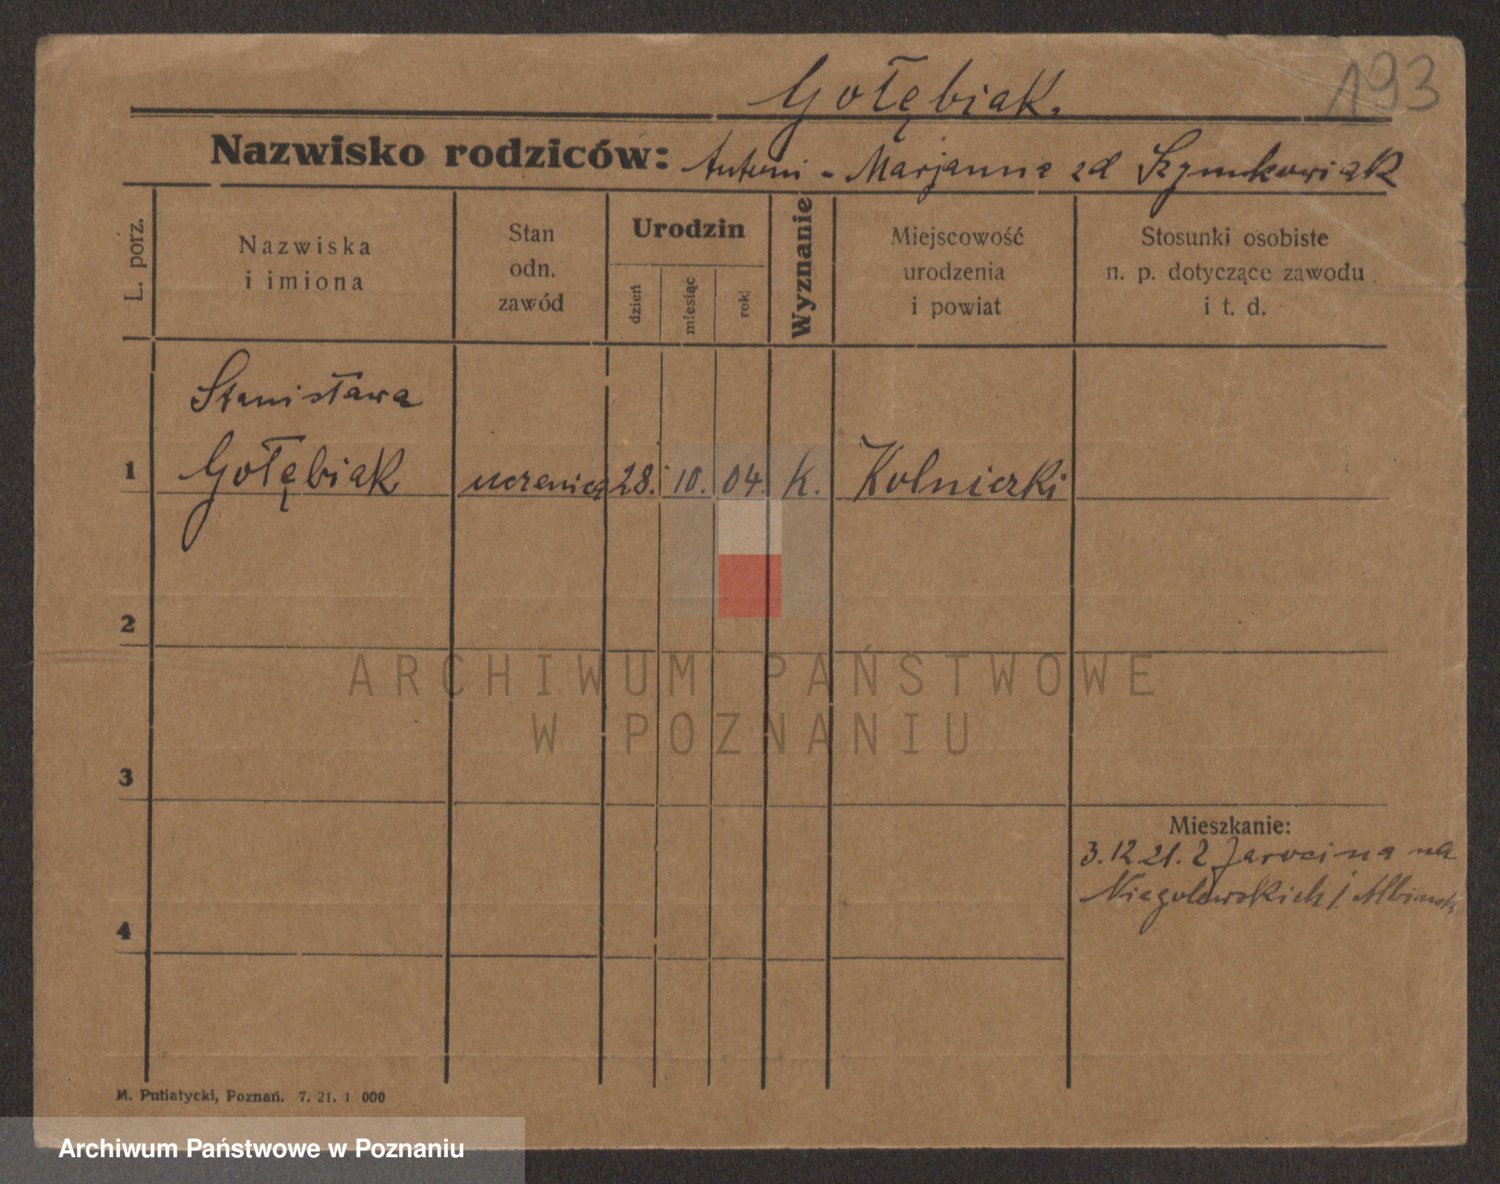 193
Gołębiak.
Nazwisko rodziców: Antoni - Marjanna zd Szymkowiak
L. porz.
Nazwiska
i imiona
Stan
odn.
zawód
Urodzin
dzień
miesiąc
rok
Wyznanie
Miejscowość
urodzenia
i powiat
Stosunki osobiste
n. p. dotyczące zawodu
i t. d.
Stanisława
1 Gołębiak uczenica 28. 10. 04. k. Kolniczki
2
ARCHIWUM PAŃSTWOWE
W POZNANIU
3
Mieszkanie:
3.12 21. z Jarocina na
Niegolewskich
4
M. Putiatycki, Poznań. 7. 21. 1 000
Archiwum Państwowe w Poznaniu